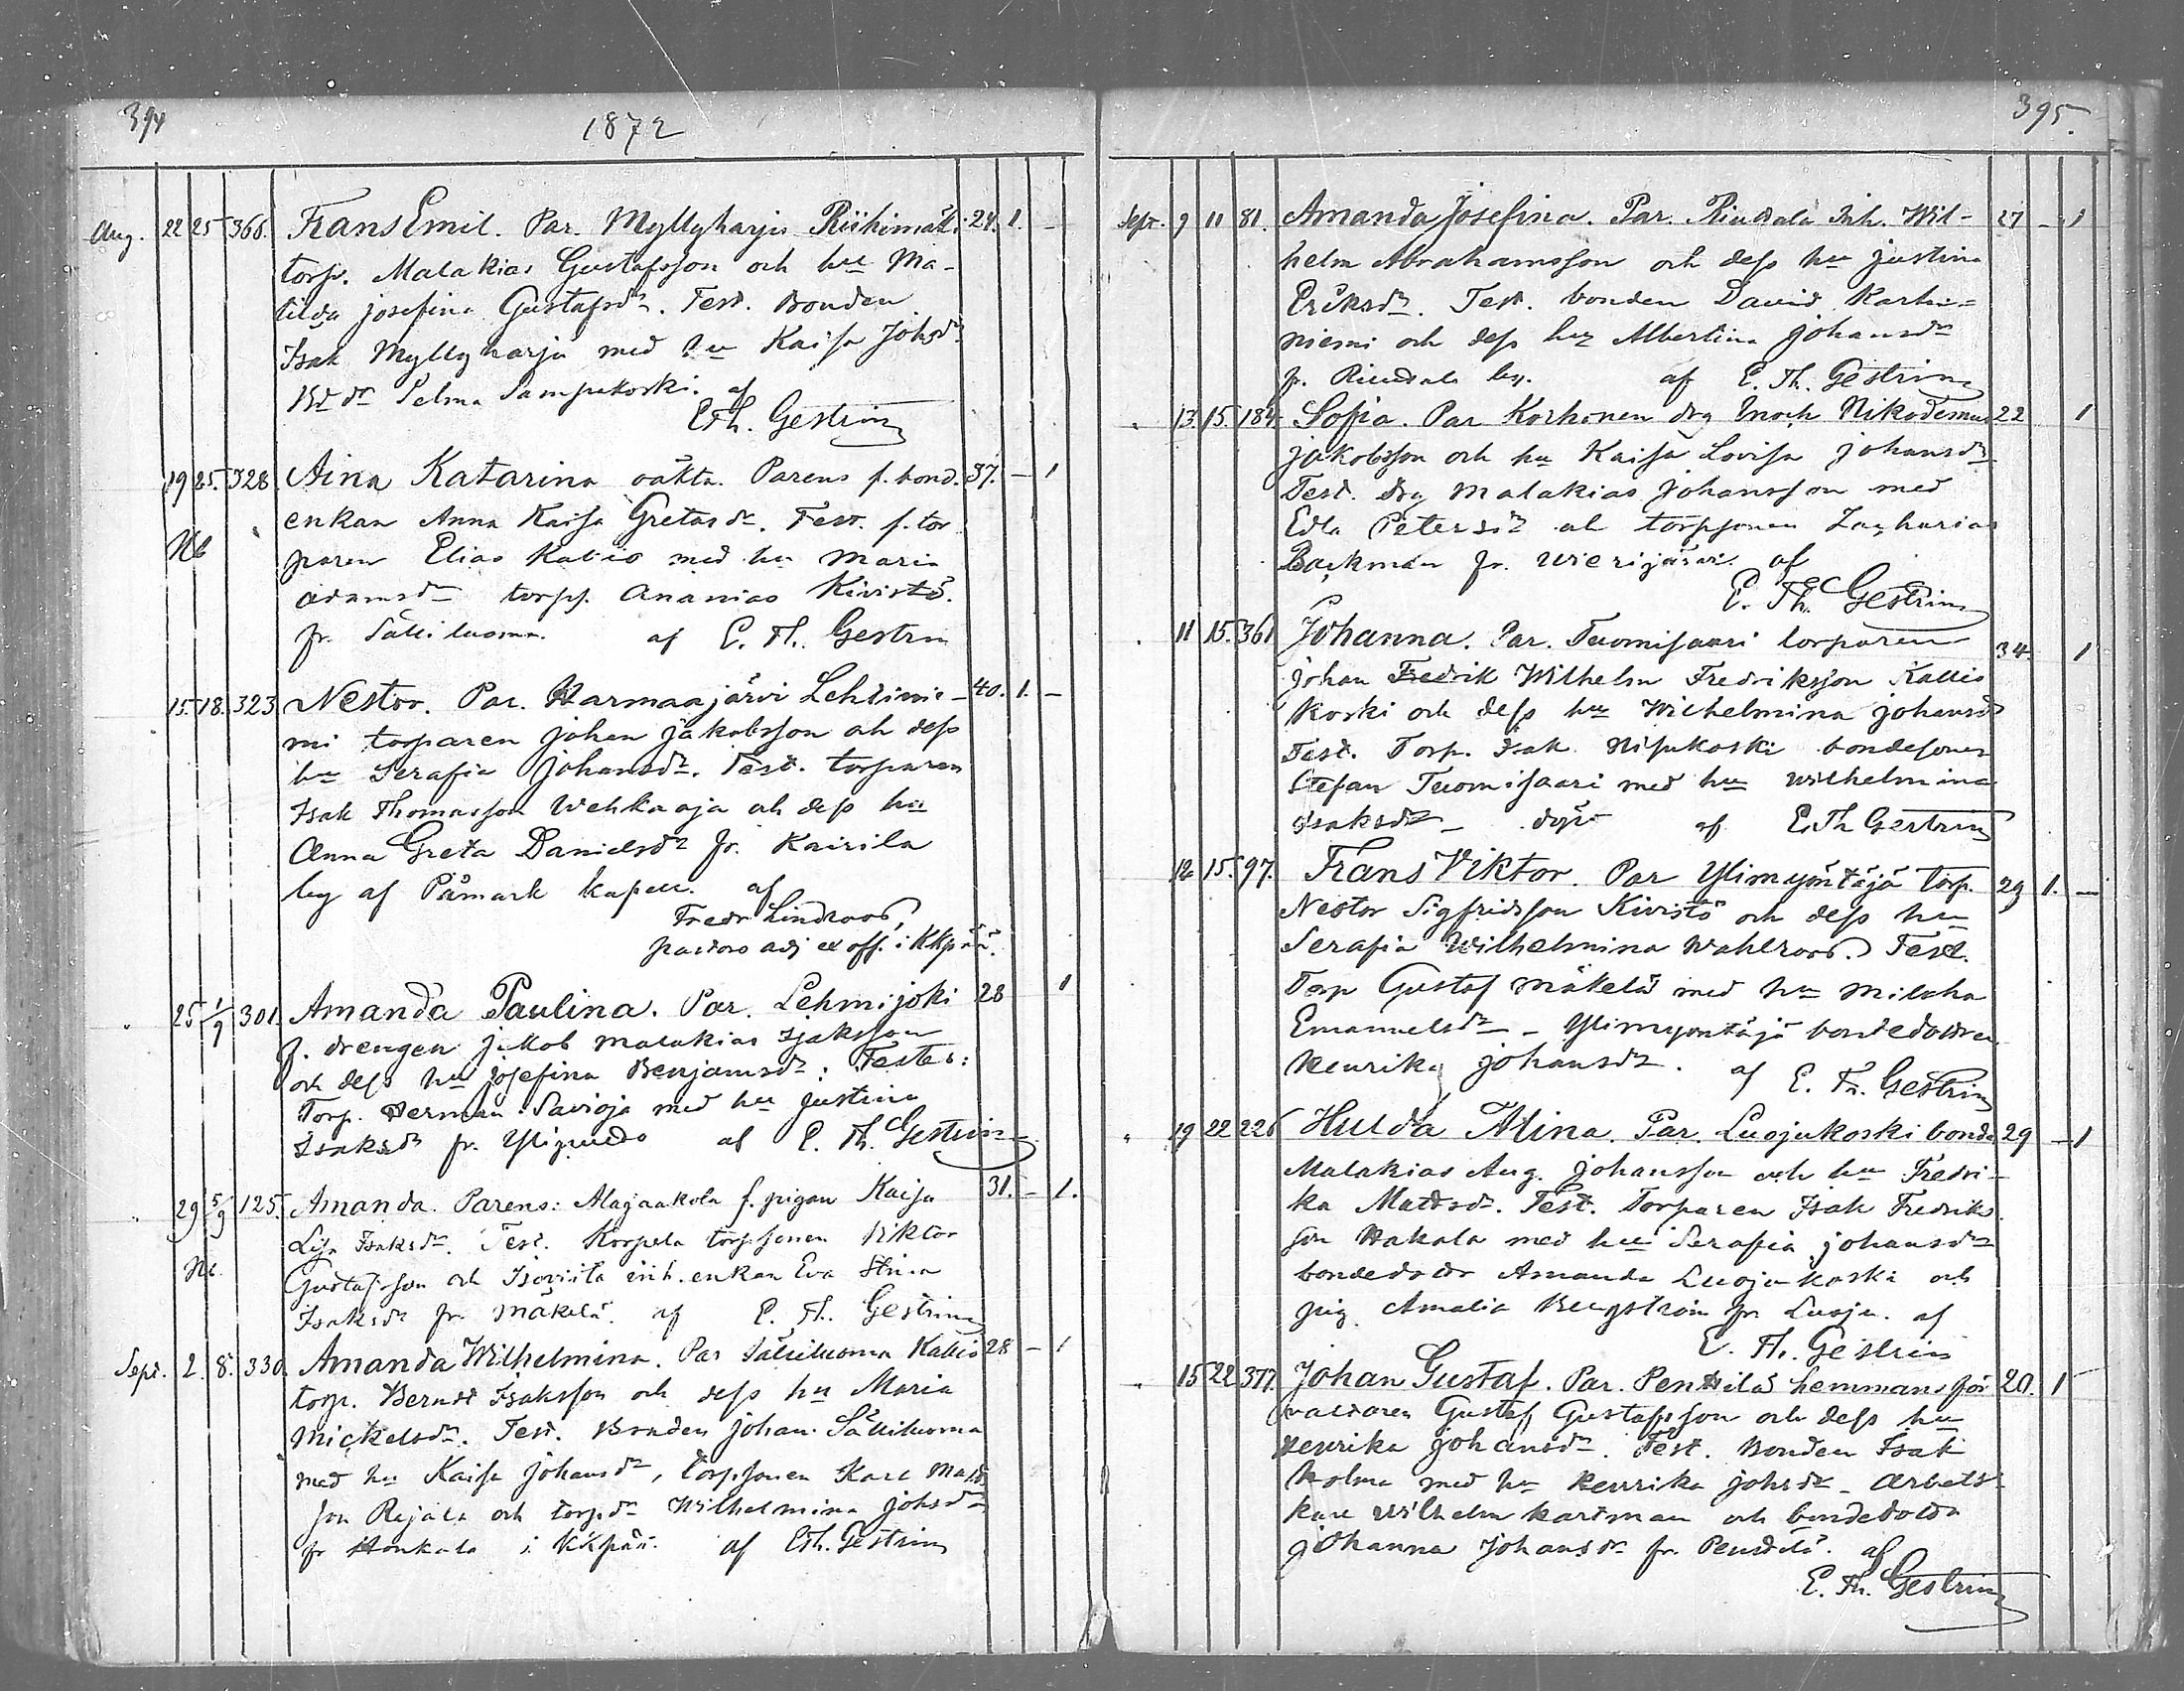 394
1872
Aug. 22 25 366. Frans Emil. Par. Myllyharju Riihimäki 24. 1. -
torp. Malakias Gustafsson och hu Ma-
tilda Josefina Gustafsdr. Test. Bonden
Isak Myllyharju med hu Kaisa Johsdr
Bd dr Selma Sampukoski. af
E.Th. Gestrin
19 25. 328 Aina Katarina oäkta. Parens f. bond. 37. - 1
enkan Anna Kaisa Gretasdr. Test. f. tor
Nb paren Elias Kallio med hu Maria
Adamsdr torps. Ananias Kivistö.
fr. Sälliluoma. af E. Th. Gestrin
15. 18. 323 Nestor. Par. Harmaajärvi Lehtinie- 40. 1. -
mi torparen Johan Jakobsson och dess
hu Serafia Johansdr. Test. torparen
Isak Thomasson Wehkaoja och dess hu
Anna Greta Danielsdr fr. Kairila
by af Påmark kapell. af
Fredr Lindroos,
pastors adj ex off. i KKpää.
" 25 1/9 301. Amanda Paulina. Par. Lehmijoki 28 1
f. drengen Jakob Malakias Isaksson
och dess hu Josefina Benjamsdr: Testes:
Torp. Herman Savioja med hu Justina
Isaksdr fr. af E. Th. Gestrin
" 29 5/9 125. Amanda. Parens: Alajaakola f. pigan Kaisa 31. - 1.
Lisa Isaksdr. Test. Korpela torpsonen Viktor
Nb. Gustafsson och Isoviita inh. enkan Eva Stina
Isaksdr fr. Mäkelä. af E. Th. Gestrin
Sept. 2. 8. 330. Amanda Wilhelmina. Par Sälliluoma Kallio 28 - 1
torp. Berndt Isaksson och dess hu Maria
Mickelsdr. Test. Bonden Johan Sälliluoma
med hu Kaisa Johansdr, torpsonen Karl Matts
son Rajala och torpdr Wilhelmina Johsdr
fr Honkala i KKpää. af E.Th. Gestrin
395.
Sept. 9 11 81. Amanda Josefina. Par. Riudala Inh. Wil- 27 - 1
helm Abrahamsson och dess hu Justina
Eriksdr. Test. bonden David Karhu-
niemi och dess hu Albertina Johansdr
fr. Riudala by. af E. Th. Gestrin
" 13. 15. 184. Sofia. Par Korhonen drg Enoch Nikodemus 22 1
Jakobsson och hu Kaisa Lovisa Johansdr
Test. drg Malakias Johansson med
Edla Petersdr och torpsonen Zacharias
Backman fr. Wierijärvi. af
E. Th. Gestrin
" 11 15. 361 Johanna. Par. Tuomisaari torparen 34. 1
Johan Fredrik Wilhelm Fredriksson Kallio
koski och dess hu Wilhelmina Johansdr
Test. Torp. Isak Nisukoski bondesonen
Stefan Tuomisaari med hu Wilhelmina
Isaksdr - döpt af E.Th Gestrin
12 15. 97. Frans Viktor. Par Ylimyöntäjä torp. 29 1. -
Nestor Sigfridsson Kivistö och dess hu
Serafia Wilhelmina Wahlroos. Test.
Torp Gustaf Mäkelä med hu Milcha
Emanuelsdr - Ylimyöntäjä bondedottren
Henrika Johansdr. af E. Th. Gestrin
" 19 22 226 Hulda Alina. Par. Luojukoski bonde 29 - 1
Malakias Aug. Johansson och hu Fredri-
ka Mattsdr. Test. Torparen Isak Fredriks
son Hakala med hu Serafia Johansdr
bondedottr Amanda Luojukoski och
pig. Amalia Bergström fr Luoju. af
E. Th. Gestrin
" 15 22 377. Johan Gustaf. Par. Penttilä hemmansför 20. 1
valtaren Gustaf Gustafsson och dess hu
Henrika Johansdr. Test. Bonden Isak
Holma med hu Henrika Johsdr - Arbets
karl Wilhelm Kartman och bondedottr
Johanna Johansdr fr. Penttilä. af
E. Th. Gestrin